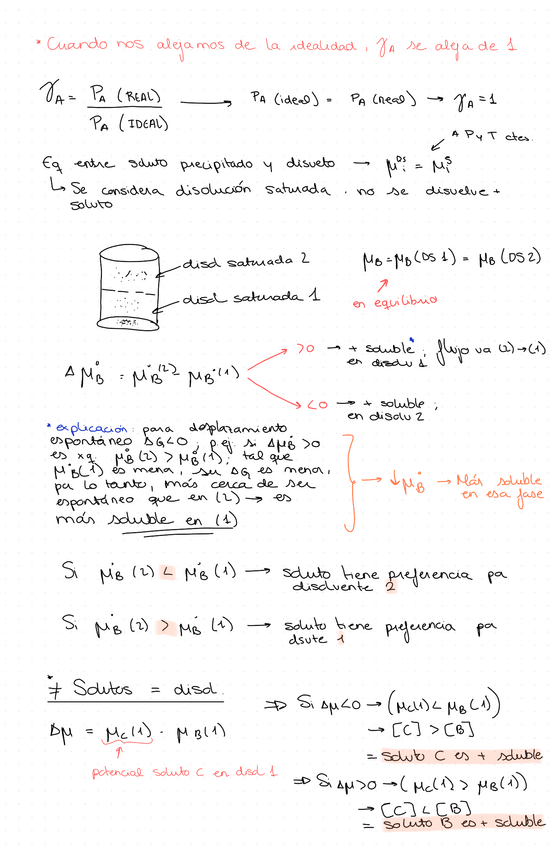 * Cuando nos alejamos de la idealidad, γA se aleja de 1
γA = PA (REAL) / PA (IDEAL) → PA (ideal) = PA (real) → γA = 1
a P y T ctes.
Eq entre soluto precipitado y disuelto → μi^DS = μi^S
↳ Se considera disolución saturada . no se disuelve +
soluto
disol saturada 2
disol saturada 1
μB = μB (DS 1) = μB (DS2)
en equilibrio
Δμ°B = μ°B (2) - μ°B (1)
>0 → + soluble* ; flujo va (2)→(1)
en disolu 1
<0 → + soluble ;
en disolu 2
* explicación: para desplazamiento
espontáneo ΔG<0 ; p.ej: si Δμ°B >0
es xq μ°B (2) > μ°B (1) ; tal que
μ°B (1) es menor, su ΔG es menor,
por lo tanto, más cerca de ser
espontáneo que en (2) → es
más soluble en (1)
→ ↓μ°B → Más soluble
en esa fase
Si μ°B (2) < μ°B (1) → soluto tiene preferencia por
disolvente 2
Si μ°B (2) > μ°B (1) → soluto tiene preferencia por
dsvte 1
* ≠ Solutos = disol.
Δμ = μC(1) - μB(1)
potencial soluto C en disol 1
⇒ Si Δμ<0 → (μC(1) < μB (1))
→ [C] > [B]
= soluto C es + soluble
⇒ Si Δμ>0 → (μC(1) > μB(1))
→ [C] < [B]
= soluto B es + soluble